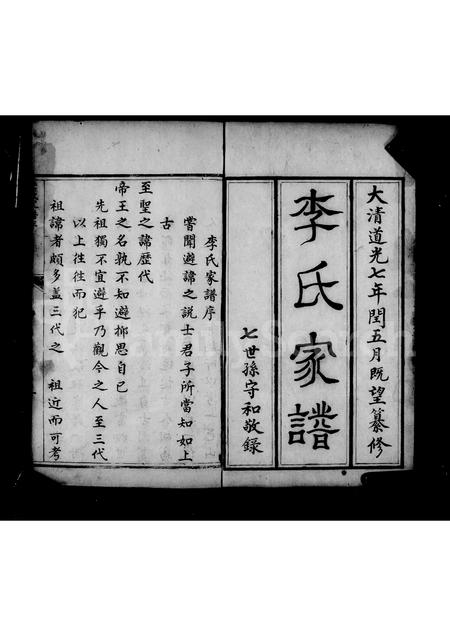 大清道光七年閏五月既望纂修
李氏家譜
七世孫守和敬錄
李氏家譜序
嘗聞避諱之說士君子所當知如上
古
至聖之諱歷代
帝王之名孰不知避抑思自己
先祖獨不宜避乎乃觀今之人至三代
以上往往而犯
祖諱者頗多蓋三代之 祖近而可考